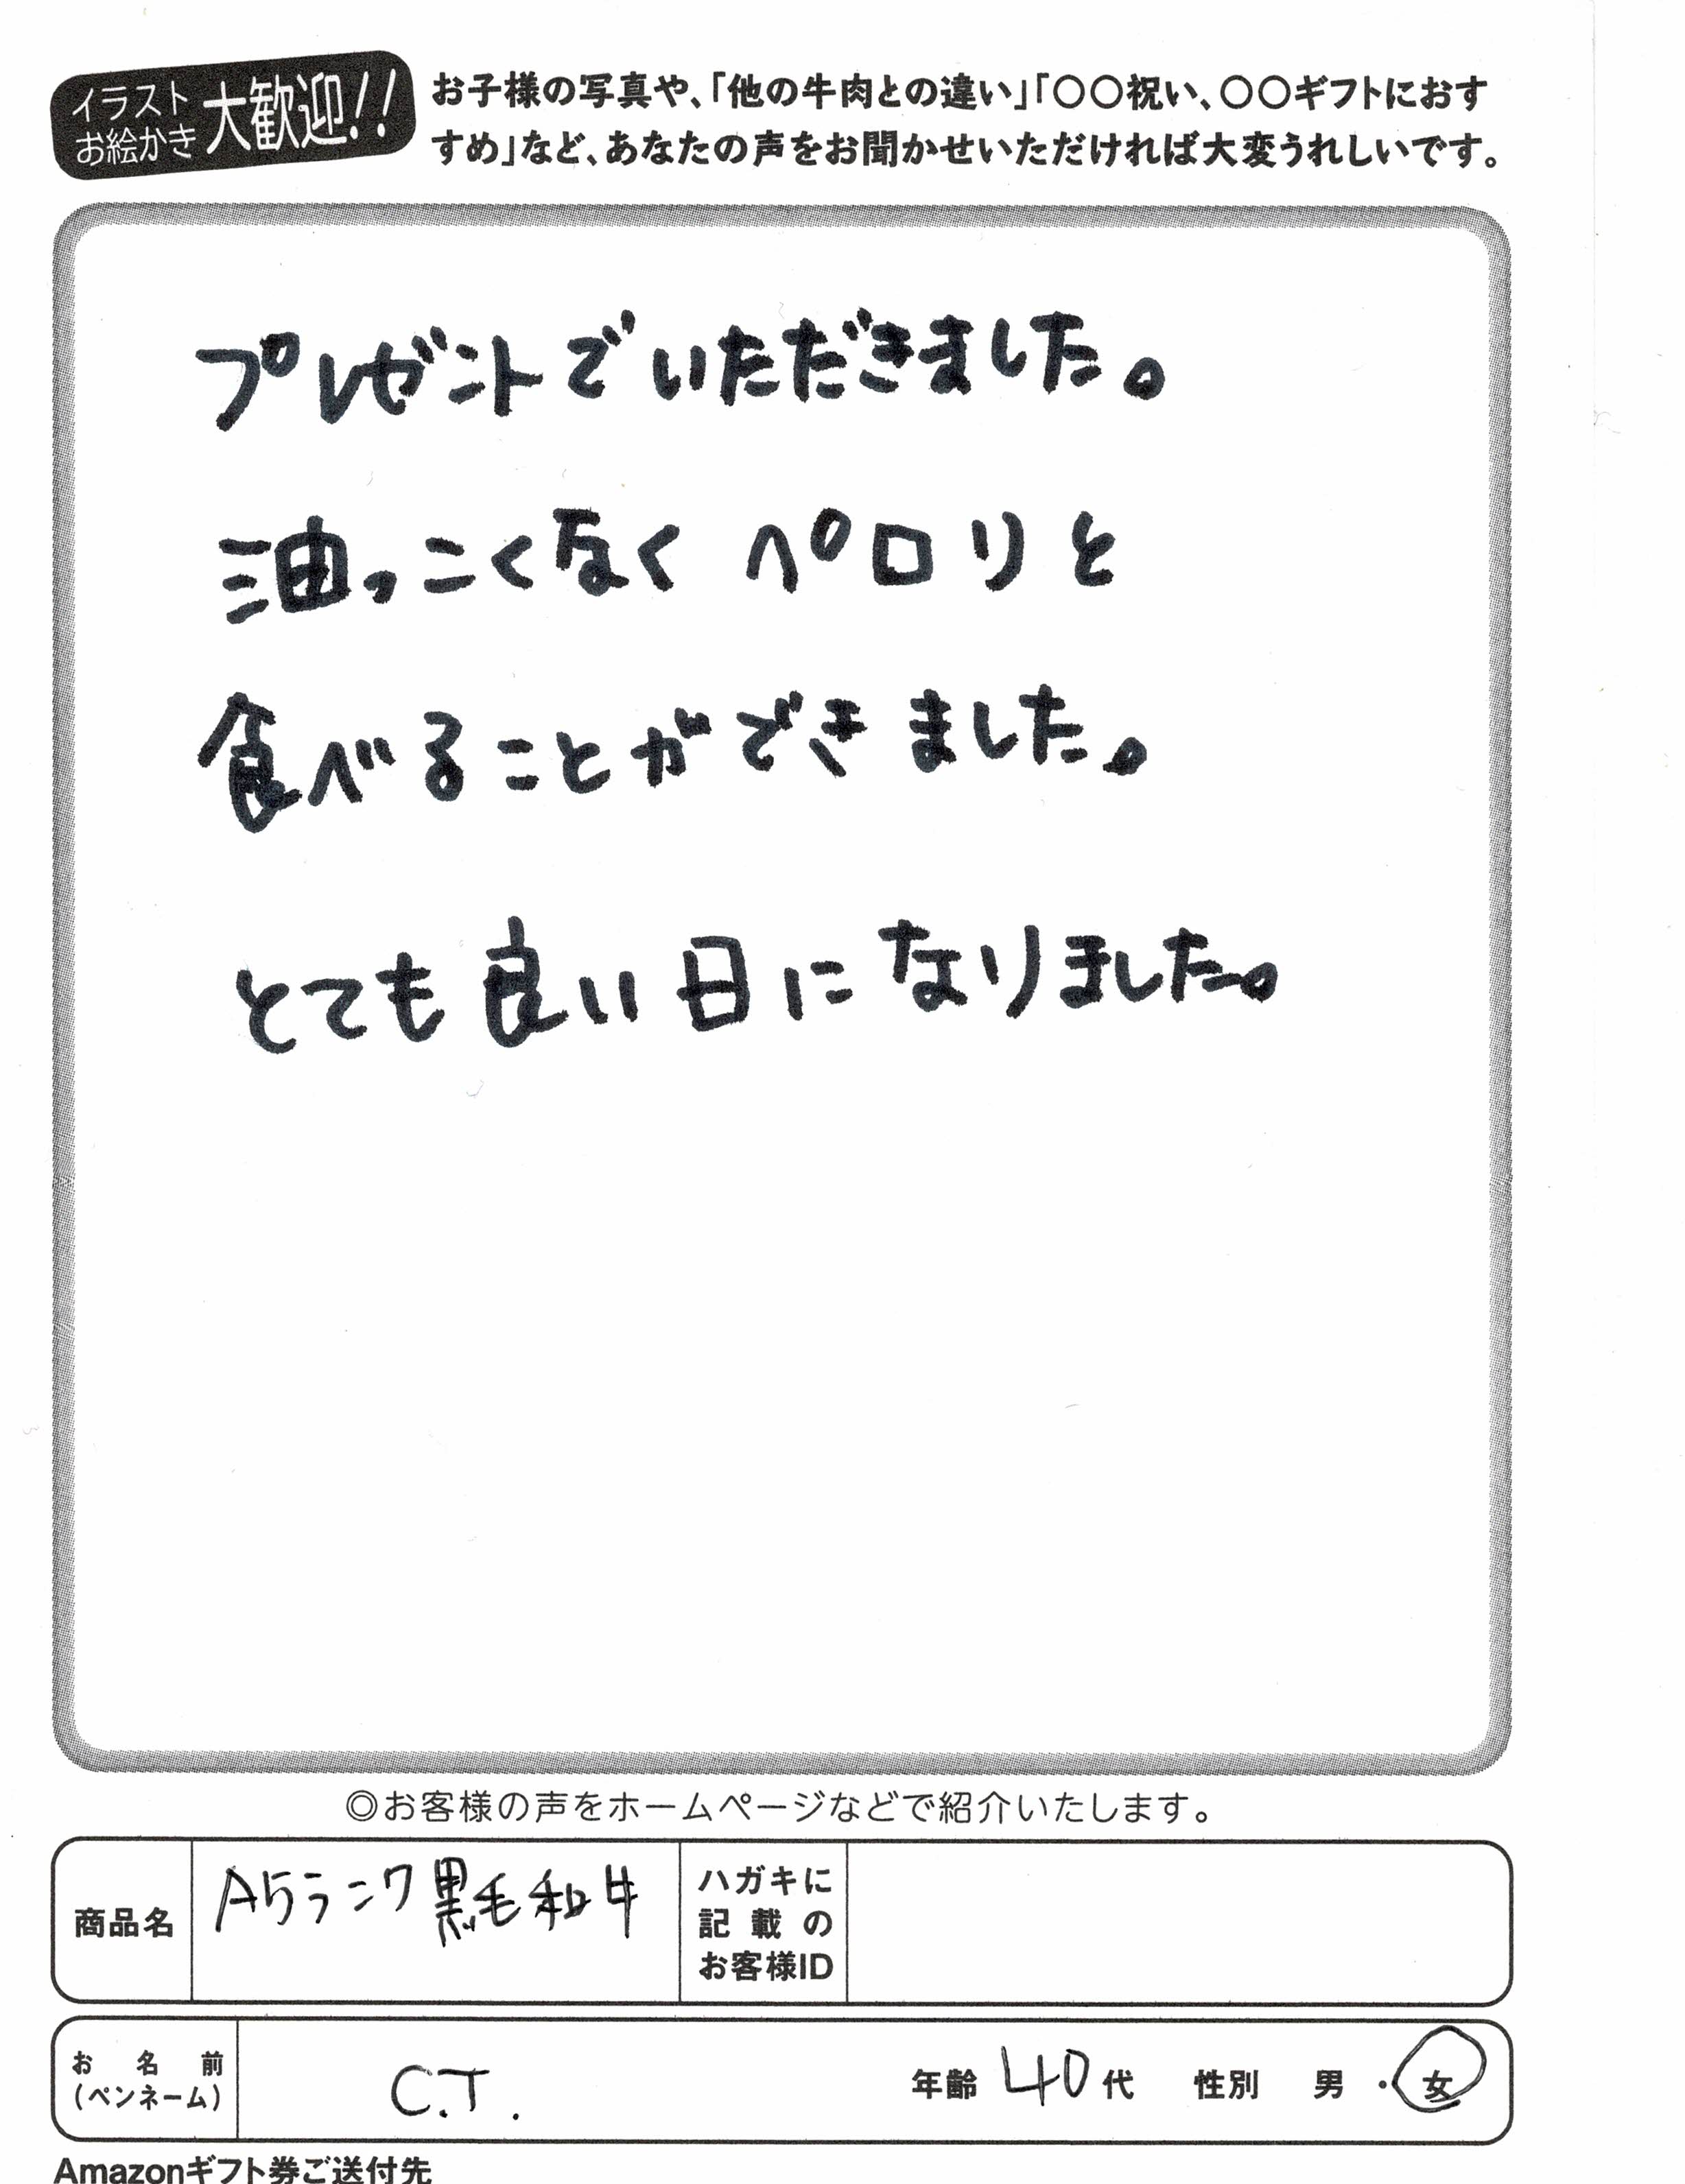 イラスト
お絵かき
大歓迎!!
お子様の写真や、「他の牛肉との違い」「〇〇祝い、〇〇ギフトにおす
すめ」など、あなたの声をお聞かせいただければ大変うれしいです。
プレゼントでいただきました。
油っこくなくペロリと
食べることができました。
とても良い日になりました。
◎お客様の声をホームページなどで紹介いたします。
商品名
A5ランク黒毛和牛
ハガキに
記載の
お客様ID
お名前
(ペンネーム)
C.T.
年齢 40代 性別 男・女
Amazonギフト券ご送付先